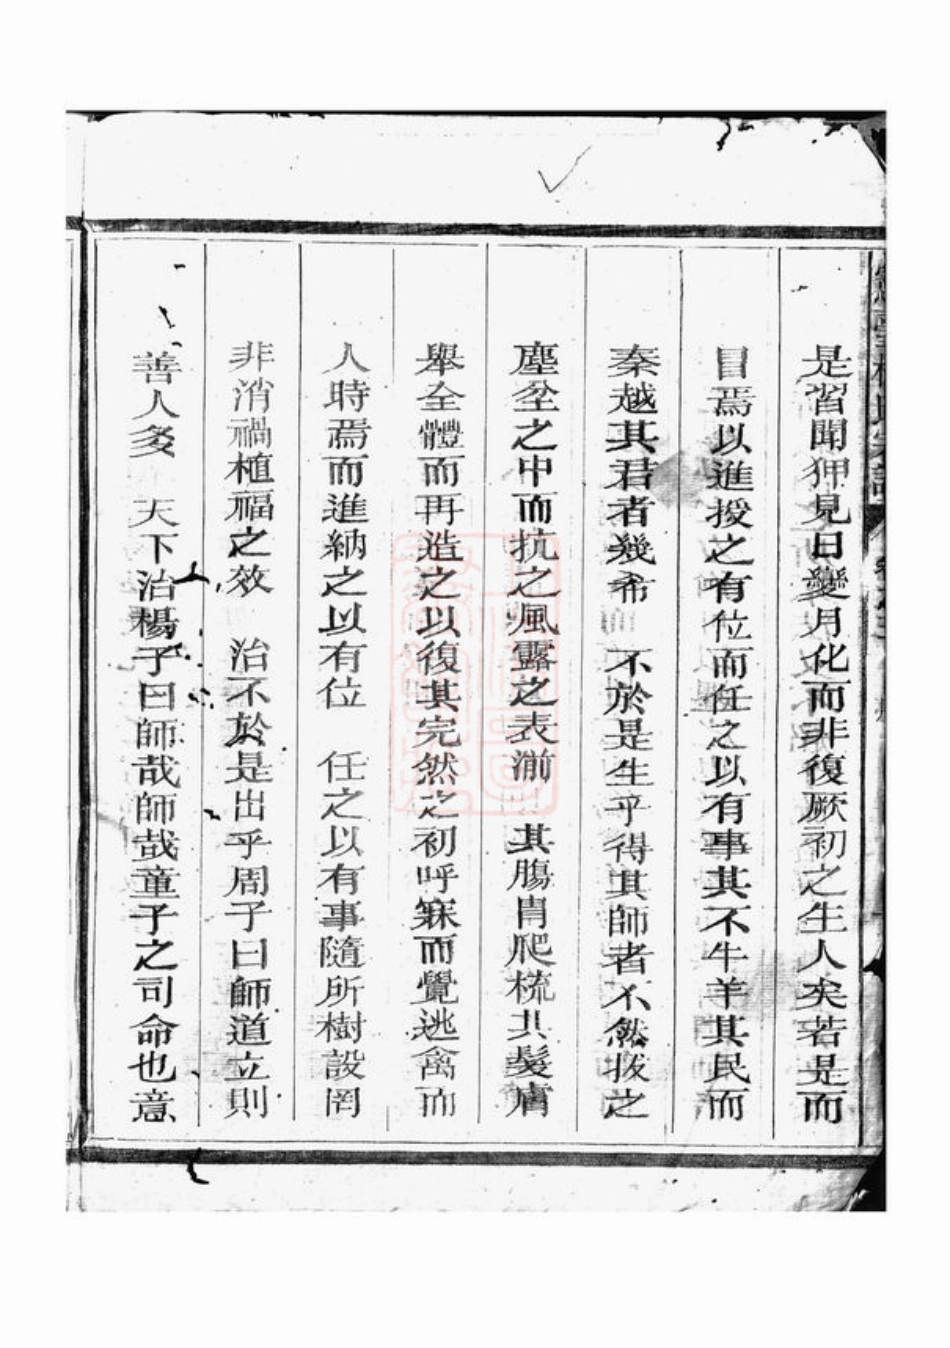 是習聞狎見日變月化而非復厥初之生人矣若是而
冒焉以進授之有位而任之以有事其不牛羊其民而
秦越其君者幾希 不於是生乎得其師者不然拔之
塵坌之中而抗之風露之表湔 其腸胃爬梳其髮膚
舉全體而再造之以復其完然之初呼寐而覺逃禽而
人時焉而進納之以有位 任之以有事隨所樹設罔
非消禍植福之效 治不於是出乎周子曰師道立則
善人多 天下治楊子曰師哉師哉童子之司命也意